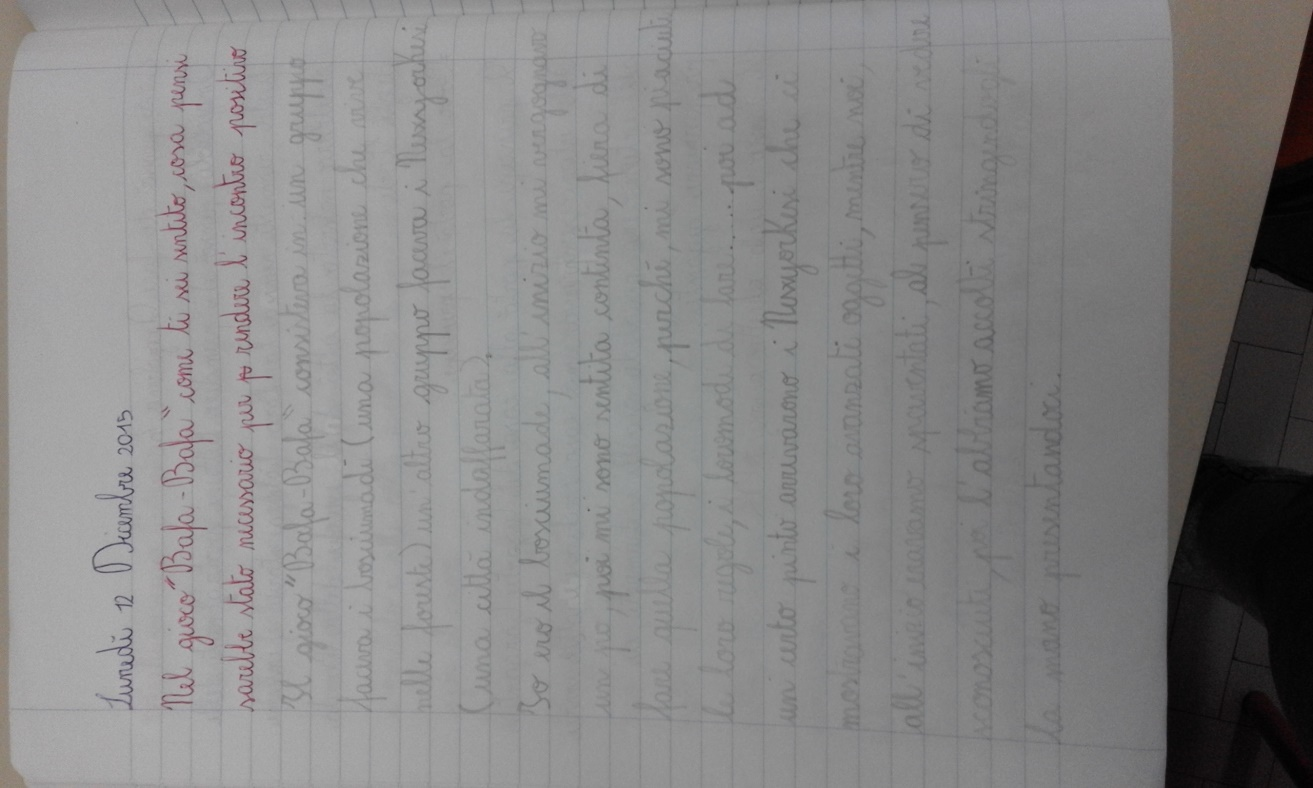 Lunedì 12 Dicembre 2015
Nel gioco "Bafa-Bafa" come ti sei sentito, cosa pensi
sarebbe stato necessario per p rendere l'incontro positivo
Il gioco "Bafa-Bafa" consisteva in un gruppo
faceva i bosciumadi (una popolazione che vive
nelle foreste) un'altro gruppo faceva i Newyorkesi
(una città indaffarata).
Io ero il bosciumade, all'inizio mi vergognavo
un pò, poi mi sono sentita contenta, fiera di
fare quella popolazione, perché, mi sono piaciuti
le loro regole, i loro modi di fare....... poi ad
un certo punto arrivarono i Newyorkesi che ci
mostravano i loro avanzati oggetti, mentre noi,
all'inizio eravamo spaventati, al pensiero di vedere
sconosciuti, poi l'abbiamo accolti stringendogli
la mano presentandoci.